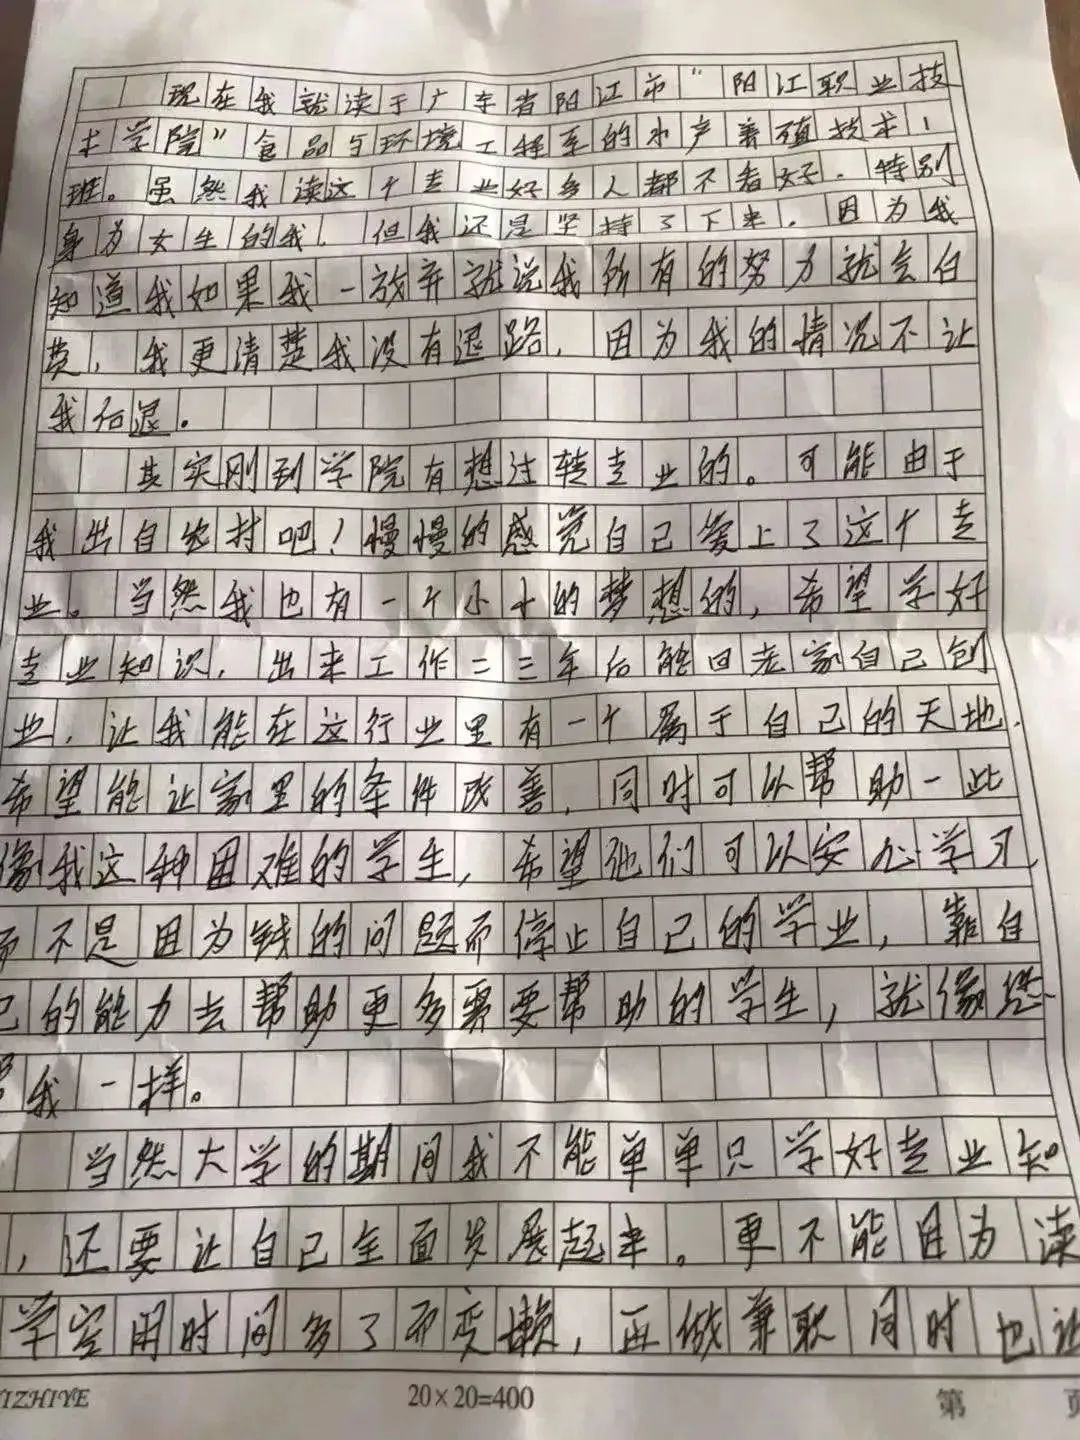 现在我就读于广东省阳江市“阳江职业技
术学院”食品与环境工程系的水产养殖技术1
班。虽然我读这个专业好多人都不看好.特别
身为女生的我.但我还是坚持了下来.因为我
知道我如果我一放弃就说我所有的努力就会白
费,我更清楚我没有退路.因为我的情况不让
我后退。
其实刚到学院有想过转专业的。可能由于
我出自农村吧!慢慢的感觉自己爱上了这个专
业。当然我也有一个小小的梦想的,希望学好
专业知识.出来工作二三年后能回老家自己创
业.让我能在这行业里有一个属于自己的天地.
希望能让家里的条件改善,同时可以帮助一些
像我这种困难的学生,希望他们可以安心学习,
而不是因为钱的问题而停止自己的学业,靠自
己的能力去帮助更多需要帮助的学生,就像您
我一样。
当然大学的期间我不能单单只学好专业知
,还要让自己全面发展起来。更不能因为读
学空闲时间多了而变懒,再做兼职同时也让
IZHIYE 20×20=400 第 页